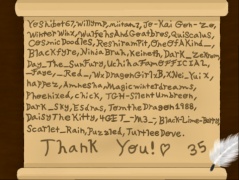 Yoshibot67, Willypmp, miitans, Jo-Kai Gon-Zo,
WinterWinx, WulfehsAndGoatbros, Quiscalus,
CosmicDoodles, ReshiramPit, OneOfAKind_,
Blackfyre, NinjaBruh, Keineth, Dark_Zekrom,
Day_The_SunFury, UchihaFamOFFICIAL,
_Faye, _Red_, WxDragonGirlxB, XNei_Yaix,
happez, Amnesha, Magicwinterdreams,
Phoenixed, chick, TGH-SilentUmbreon,
Dark_Sky, Esdras, TomtheDragon1988,
Daisy The Kitty, 4GET_M3_, BlackLime-Berry,
Scarlet_Rain, Puzzled, TurtleeDove.
Thank You! 35